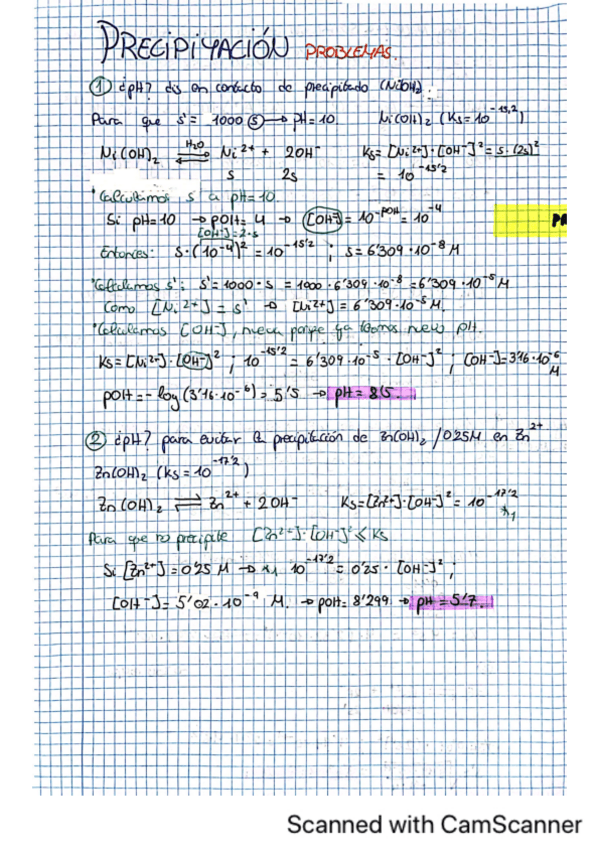 PRECIPITACIÓN PROBLEMAS.
① ¿pH? dis en contacto de precipitado (Ni(OH)₂).
Para que s' = 1000 ⓢ → pH = 10. Ni(OH)₂ (Ks = 10^-15,2)
Ni(OH)₂ ⇌ H₂O Ni²⁺ + 2OH⁻ Ks = [Ni²⁺]·[OH⁻]² = s·(2s)²
s 2s = 10^-15'2
* Calculamos s a pH = 10
Si pH = 10 → pOH = 4 → [OH⁻] = 10^-pOH = 10^-4
[OH⁻] = 2·s
Entonces: s·(10^-4)² = 10^-15'2 ; s = 6'309·10^-8 M
* Calculamos s': s' = 1000·s = 1000·6'309·10^-8 = 6'309·10^-5 M
Como [Ni²⁺] = s' → [Ni²⁺] = 6'309·10^-5 M.
* Calculamos [OH⁻], nueva porque ya tenemos nuevo pH.
Ks = [Ni²⁺]·[OH⁻]² ; 10^-15'2 = 6'309·10^-5·[OH⁻]² ; [OH⁻] = 3'16·10^-6 M
pOH = -log(3'16·10^-6) = 5'5 → pH = 8'5.
② ¿pH? para evitar la precipitación de Zn(OH)₂ / 0'25M en Zn²⁺
Zn(OH)₂ (Ks = 10^-17'2)
Zn(OH)₂ ⇌ Zn²⁺ + 2OH⁻ Ks = [Zn²⁺]·[OH⁻]² = 10^-17'2
*₁
Para que no precipite [Zn²⁺]·[OH⁻]² ≤ Ks
Si [Zn²⁺] = 0'25 M → *₁ 10^-17'2 = 0'25·[OH⁻]² ;
[OH⁻] = 5'02·10^-9 M. → pOH = 8'299 → pH = 5'7.
Scanned with CamScanner